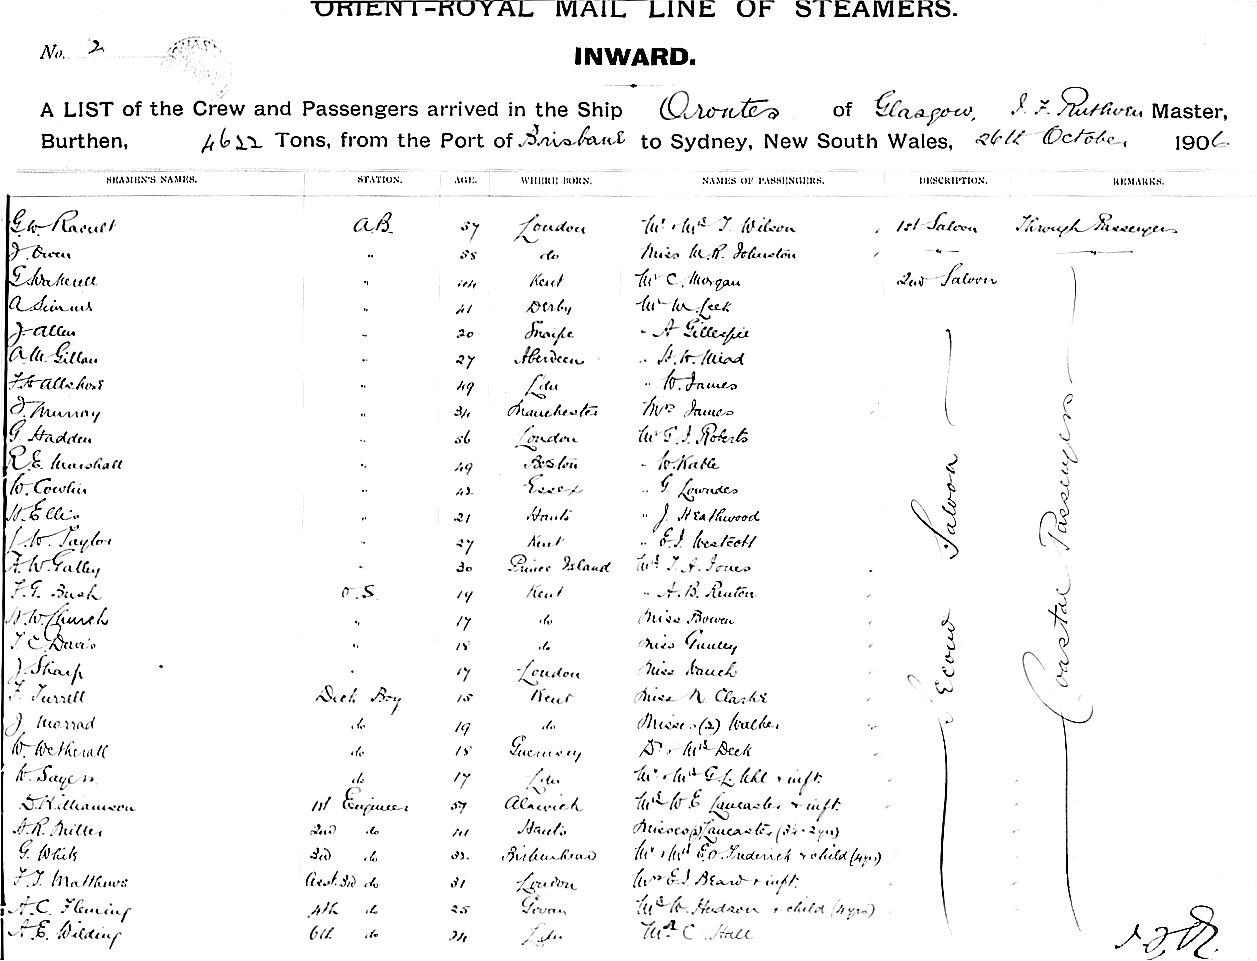 ORIENT-ROYAL MAIL LINE OF STEAMERS.
No. 2
INWARD.
A LIST of the Crew and Passengers arrived in the Ship Orontes of Glasgow, J. F. Ruthven Master,
Burthen, 4622 Tons, from the Port of Brisbane to Sydney, New South Wales, 26th October 1906
SEAMEN'S NAMES. STATION. AGE. WHERE BORN. NAMES OF PASSENGERS. DESCRIPTION. REMARKS.
G. W. Raoult A.B. 57 London Mr & Mrs T. Wilson 1st Saloon Through Passengers
J. Owen " 55 do Miss M. R. Johnston " "
G. Wakenell " 44 Kent Mr C. Morgan 2nd Saloon
A Simms " 41 Derby Mr W. Leek
J. Allen " 20 " A Gillespie
A. M. Gillan " 27 Aberdeen " H. W. Mead
" 49 " W. James
J. Murray " 34 Manchester Mrs James
G Hadden " 56 London Mr T. J. Roberts
R. E. Marshall " 49 Boston " W. Kable
W. Cowlin " 42 Essex " G. Lowndes
H. Ellis " 21 Hants " J. Heathwood
J. W. Taylor " 27 Kent " E. J. Westcott
A. W. Galley " 30 Prince Island Mrs T. A. Jones
F. G. Bush O.S. 19 Kent " A. B. Renton
H. W. Church " 17 do Miss Bowen
T. C. Davis " 18 do Miss
J. Sharp " 17 London Miss
F. Turrell Deck Boy 15 Kent Miss N. Clarke
J. Morrad do 19 do Misses (2) Walker
W. Wetherall do 18 Guernsey Dr & Mrs Deck
W. Sayers do 17 Mr & Mrs G. L. Uhl & inft.
D. Williamson 1st Engineer 57 Alnwick Mrs W. E. Lancaster & inft.
A. R. Miller 2nd do 41 Hants Misses (2) Lancaster (3½ & 2yrs)
G. White 3rd do 32 Birkenhead Mr & Mrs E. O. Frederick & child (4yrs)
F. J. Matthews Asst. 3rd do 31 London Mrs E. J. Beard & inft.
A. C. Fleming 4th do 25 Govan Mrs W. Hudson & child (4yrs)
A. E. Wilding 6th do 24 Mrs C Hall
Second Saloon
Coastal Passengers